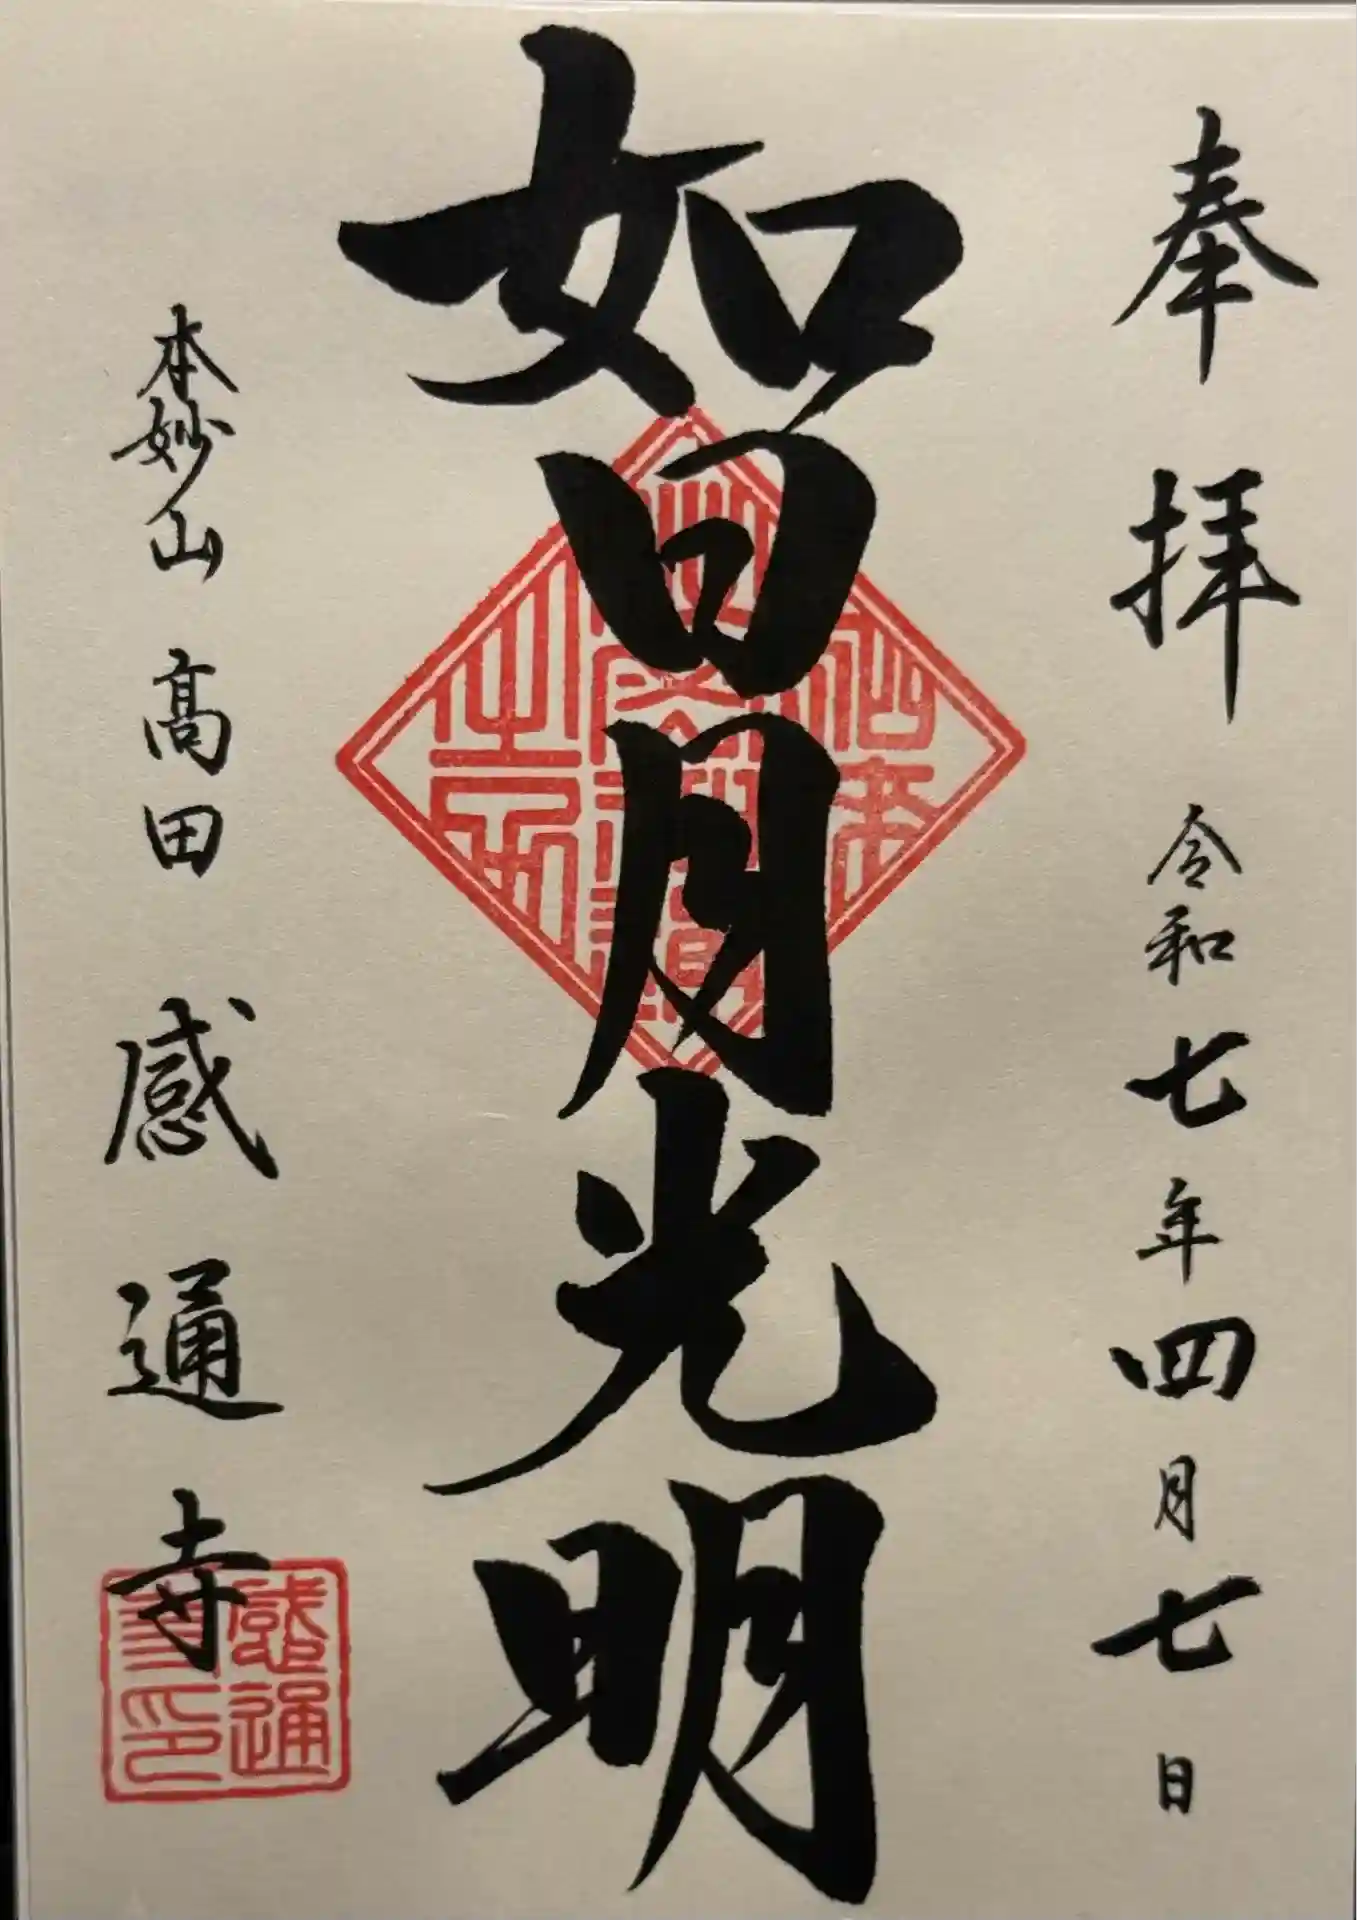 奉拝 令和七年四月七日
如日月光明
本妙山 高田 感通寺
感通
寺印